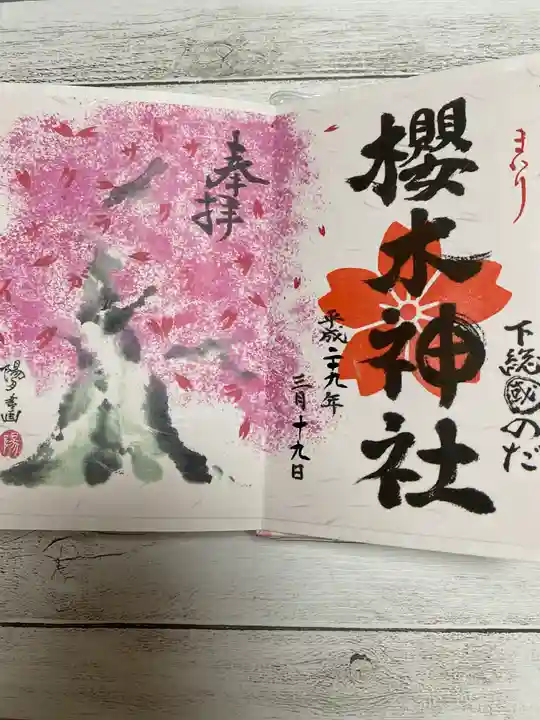 まいり
下総國のだ
櫻木神社
奉拝
平成二十九年
三月十九日
陽夕季画
陽